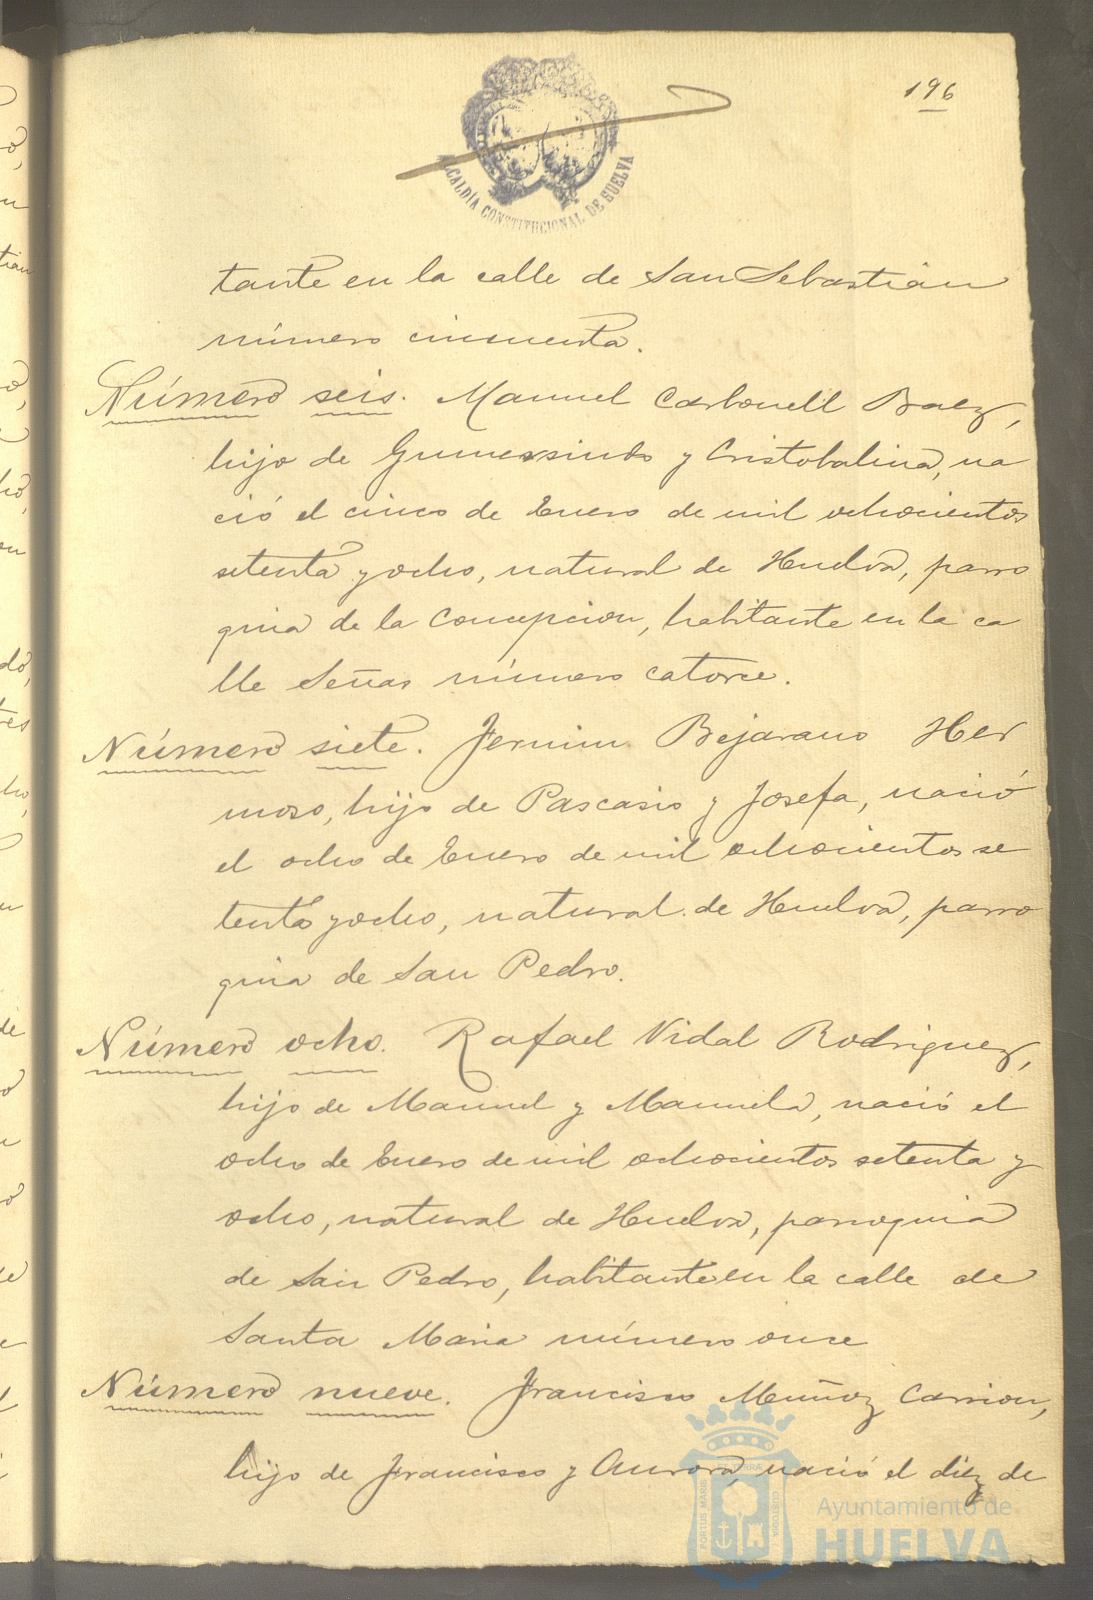 196
ALCALDÍA CONSTITUCIONAL DE HUELVA
tante en la calle de San Sebastián
número cincuenta.
Número seis. Manuel Carbonell Baez,
hijo de Gumersindo y Cristobalina, na
ció el cinco de Enero de mil ochocientos
setenta y ocho, natural de Huelva, parro
quia de la Concepcion, habitante en la ca
lle Señas número catorce.
Número siete. Fermin Bejarano Her
moso, hijo de Pascasio y Josefa, nació
el ocho de Enero de mil ochocientos se
tenta y ocho, natural de Huelva, parro
quia de San Pedro.
Número ocho. Rafael Vidal Rodriguez,
hijo de Manuel y Manuela, nació el
ocho de Enero de mil ochocientos setenta y
ocho, natural de Huelva, parroquia
de San Pedro, habitante en la calle de
Santa Maria número once
Número nueve. Francisco Muñoz Carrion,
hijo de Francisco y Aurora, nació el diez de
PORTUS MARIS ET TERRAE CUSTODIA
Ayuntamiento de
HUELVA